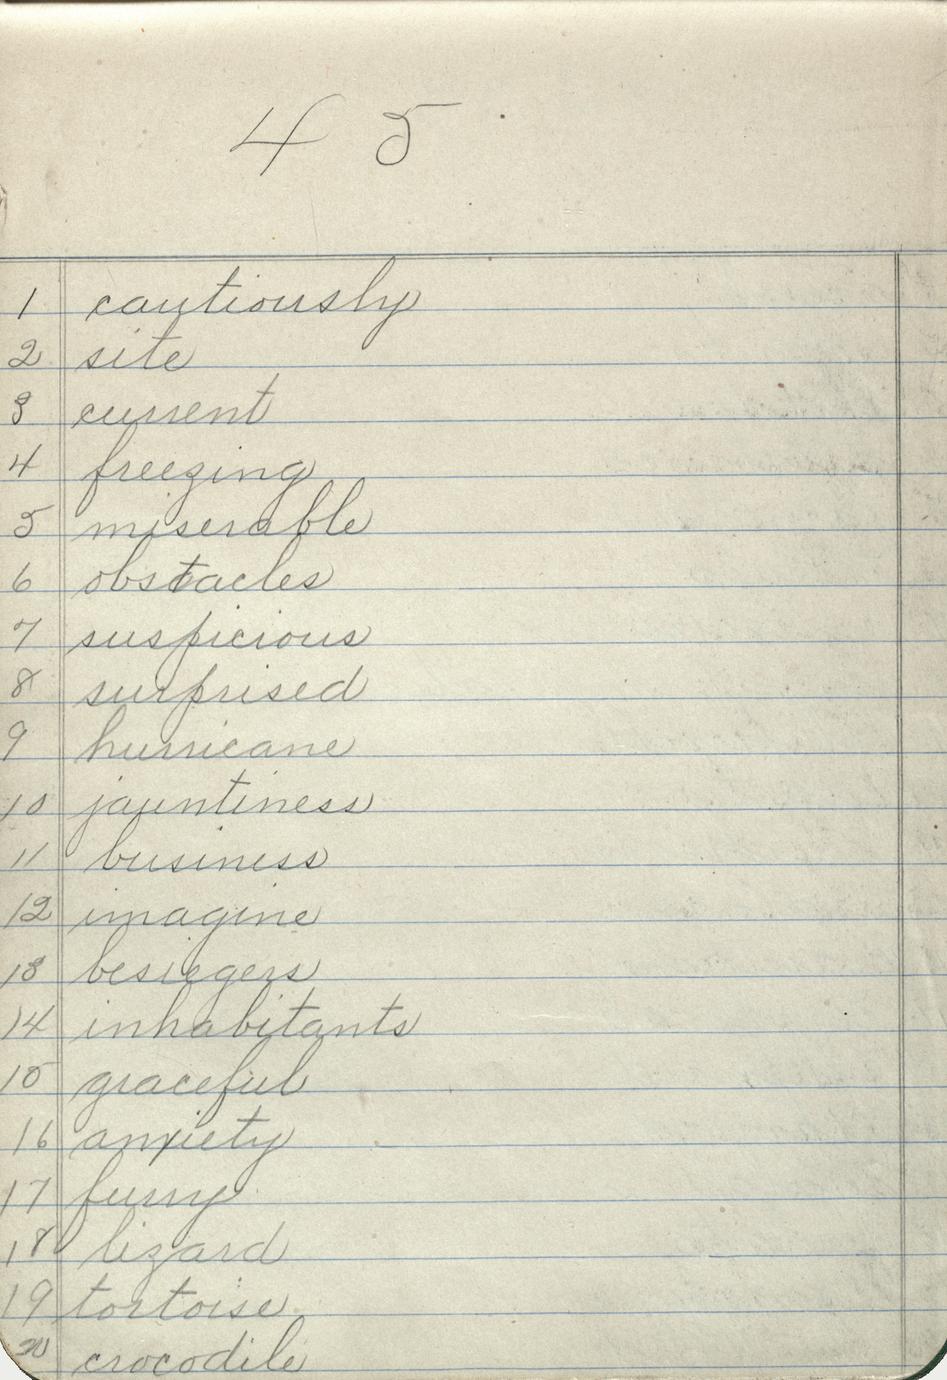 4 5
1 cautiously
2 site
3 current
4 freezing
5 miserable
6 obstacles
7 suspicious
8 surprised
9 hurricane
10 jauntiness
11 business
12 imagine
13 besiegers
14 inhabitants
15 graceful
16 anxiety
17 furry
18 lizard
19 tortoise
20 crocodile